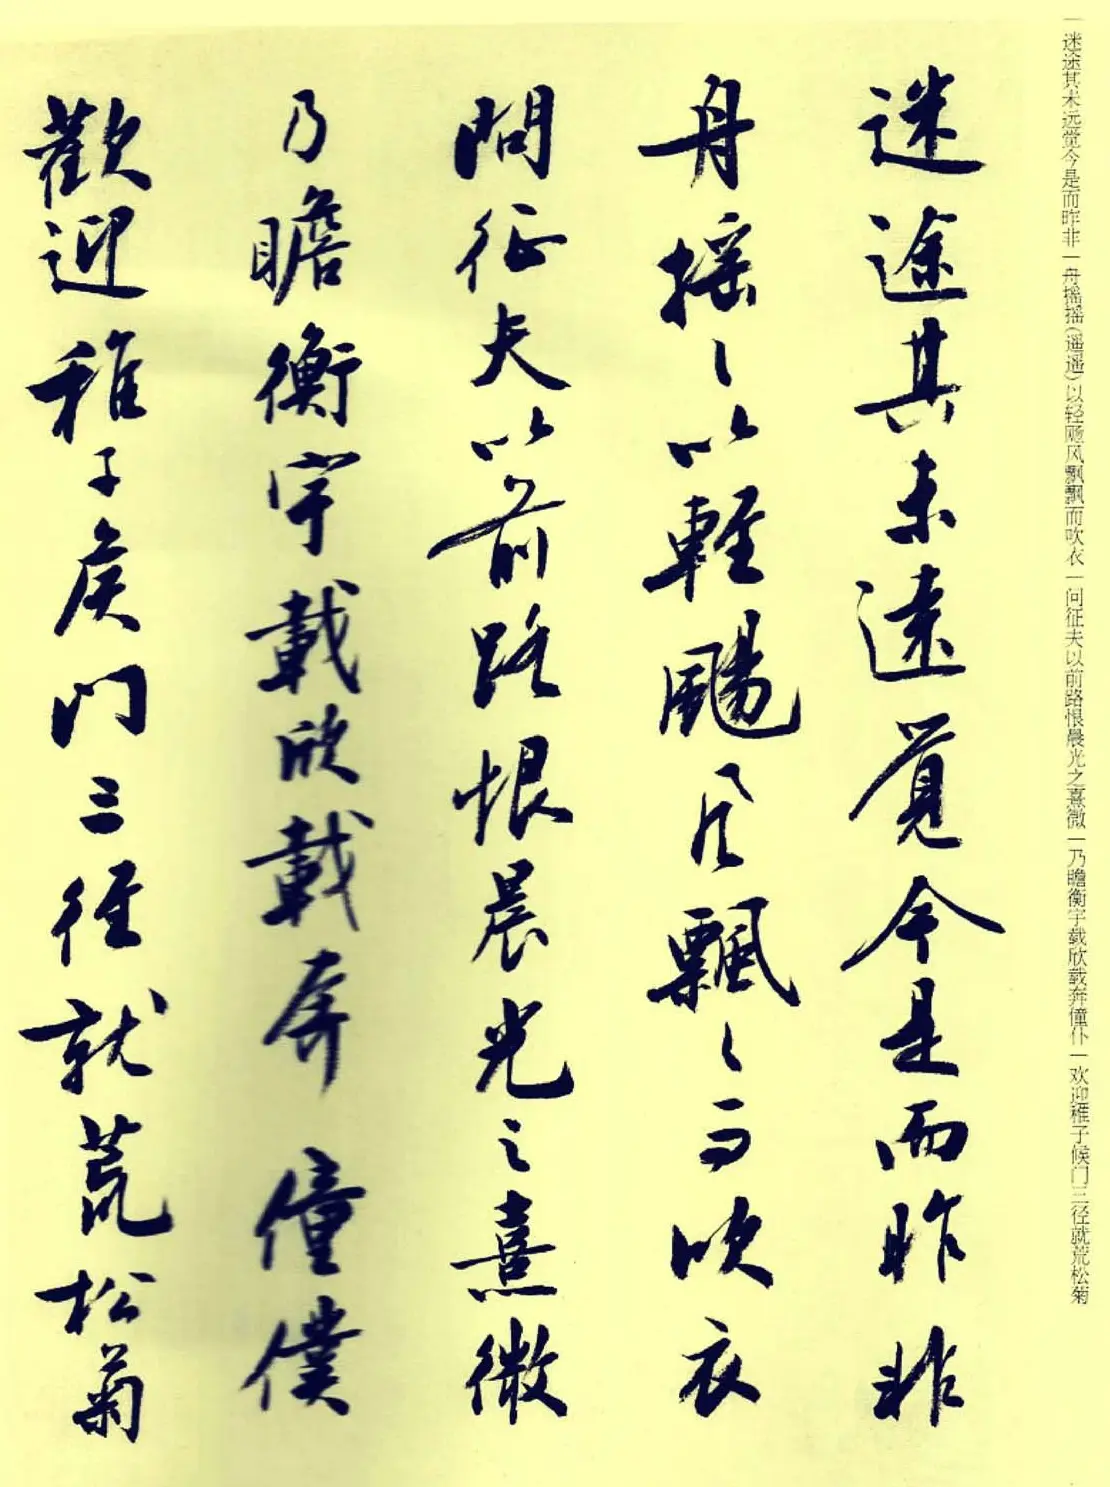 一迷途其未远觉今是而昨非一舟摇摇(遥遥)以轻飏风飘飘而吹衣一问征夫以前路恨晨光之熹微一乃瞻衡宇载欣载奔僮仆一欢迎稚子候门三径就荒松菊
迷途其未遠覺今是而昨非
舟摇〻以輕颺風飄〻而吹衣
問征夫以前路恨晨光之熹微
乃瞻衡宇載欣載奔僮僕
歡迎稚子矦門三徑就荒松菊